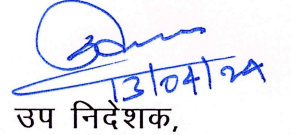 13/04/24
उप निदेशक,